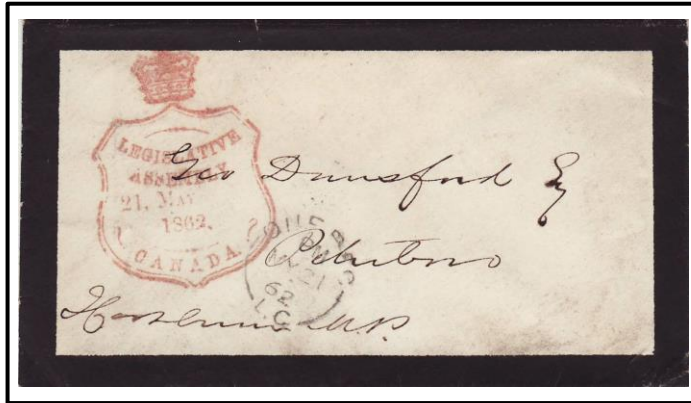 LEGISLATIVE
ASSEMBLY
21. MAY
1862.
CANADA
Geo Dunsford Esq
QUEBEC
MY 21
62
L.C.